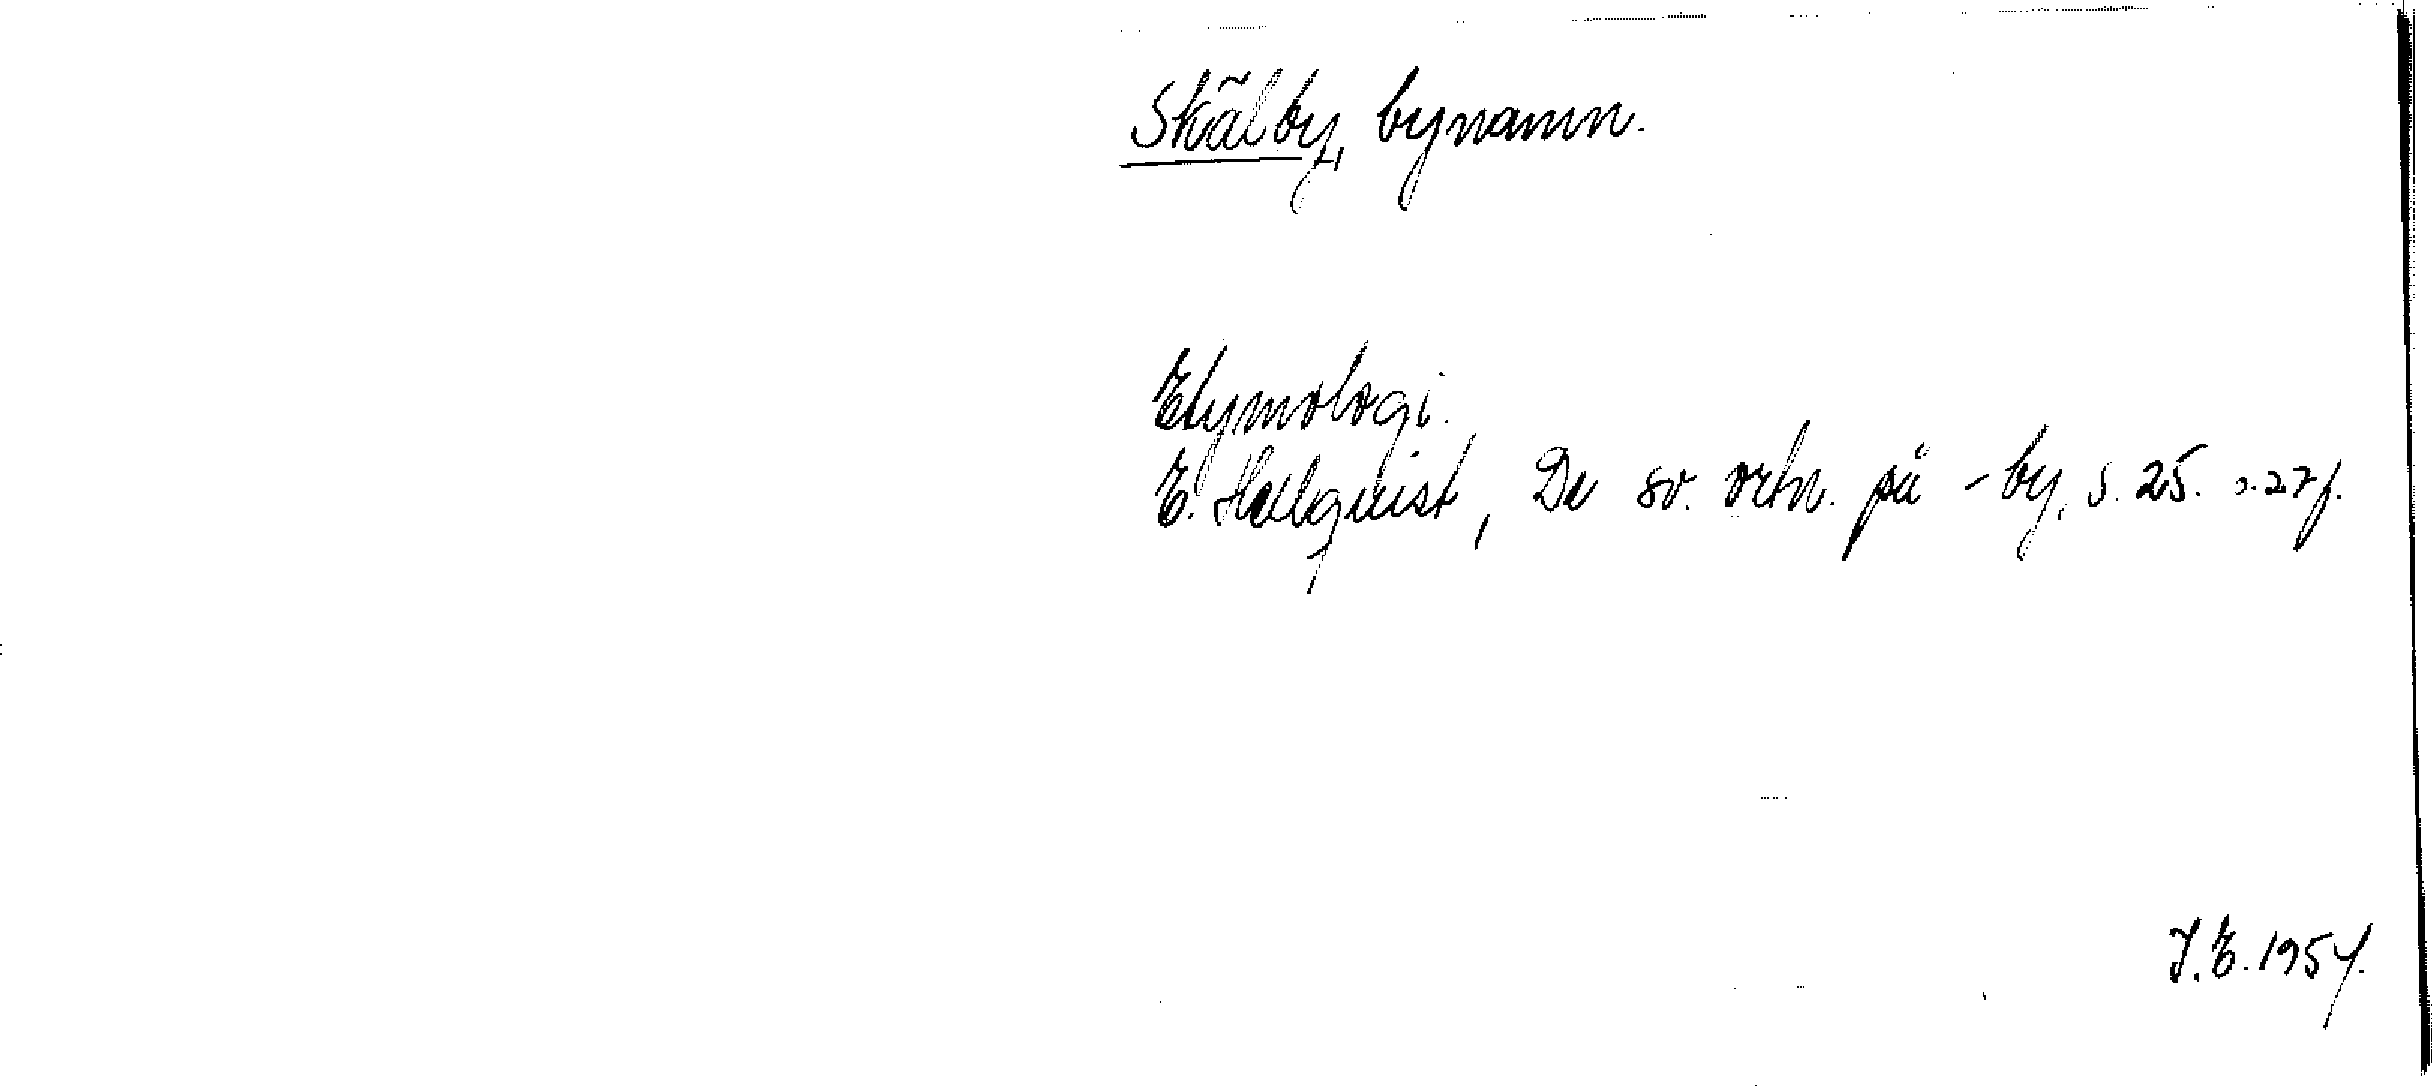 Skälby, bynamn.
Etymologi.
E. Hellquist, De sv. ortn. på -by, s. 25. s. 27 f.
J.E. 1954.